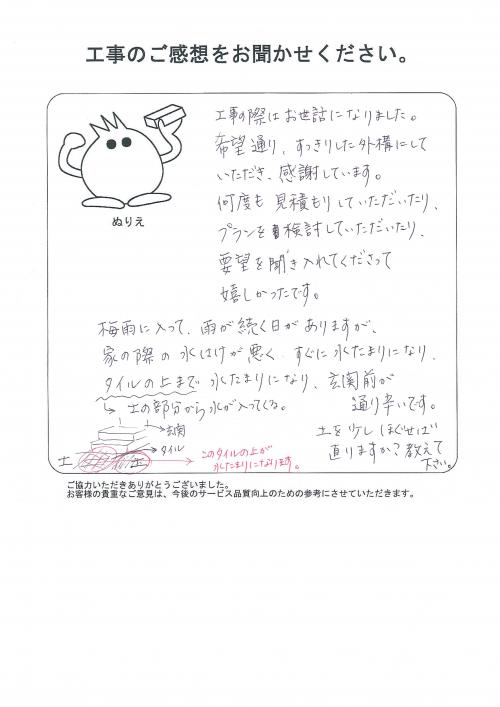 工事のご感想をお聞かせください。
工事の際はお世話になりました。
希望通り、すっきりした外構にして
いただき、感謝しています。
何度も見積もりしていただいたり、
プランを検討していただいたり、
要望を聞き入れてくださって
嬉しかったです。
ぬりえ
梅雨に入って、雨が続く日がありますが、
家の際の水はけが悪く、すぐに水たまりになり、
タイルの上まで水たまりになり、玄関前が
通り辛いです。
↳土の部分から水が入ってくる。
→玄関
→タイル
土
土
→このタイルの上が
水たまりになります。
土を少しほぐせば
直りますか?教えて
下さい。
ご協力いただきありがとうございました。
お客様の貴重なご意見は、今後のサービス品質向上のための参考にさせていただきます。